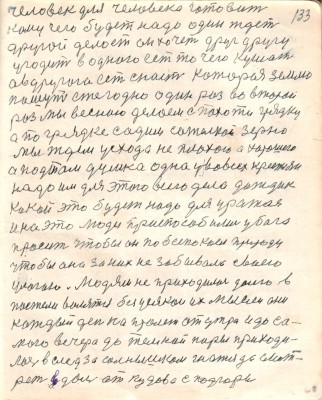 133
человек для человека готовит
кому чего будет надо один ждет
другой делает он хочет друг другу
угодит в одного ест то чего кушает
а в другога ест спаит которая землю
пашут ежегодно один раз во второй
раз мы весною делаем с пахоты грядку
а по грядке садим сажалкой зерно
мы ждем усхода не плохого а хорошего
а подтом душка одна у во всех
надо им для этого всего дела дождик
какой это будет надо для уражая
и на это люди приспособились у бога
просит чтобы он побеспокоил природу
чтобы она за них не забывала своего
Людям не приходилось долго в
постели валятся без усякой их мысли они
каждый ден на пролет от утра и до са-
мого вечера до темной поры приходи-
лось вслед за солнышком гнатся да смот-
рет вдоль от кудова с подгоры